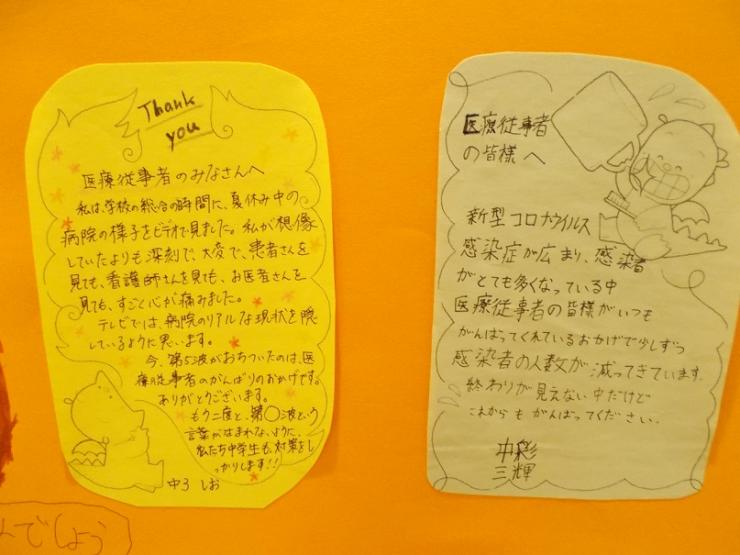 Thank
you
医療従事者のみなさんへ
私は、学校の総合の時間に、夏休み中の
病院の様子をビデオで見ました。私が想像
していたよりも深刻で、大変で、患者さんを
見ても、看護師さんを見ても、お医者さんを
見ても、すごく心が痛みました。
テレビでは、病院のリアルな現状を隠
しているように思います。
今、第5波がおちついたのは、医
療従事者のがんばりのおかげです。
ありがとうございます。
もう二度と、第〇波という
言葉がうまれないように、
私たち中学生も対策をし
っかりします!!
中3 しお
医療従事者
の皆様へ
新型コロナウイルス
感染症が広まり、感染者
がとても多くなっている中
医療従事者の皆様がいつも
がんばってくれているおかげで少しずつ
感染者の人数が減ってきています。
終わりが見えない中だけど
これからもがんばってください。
中彩
三輝
んでしょう